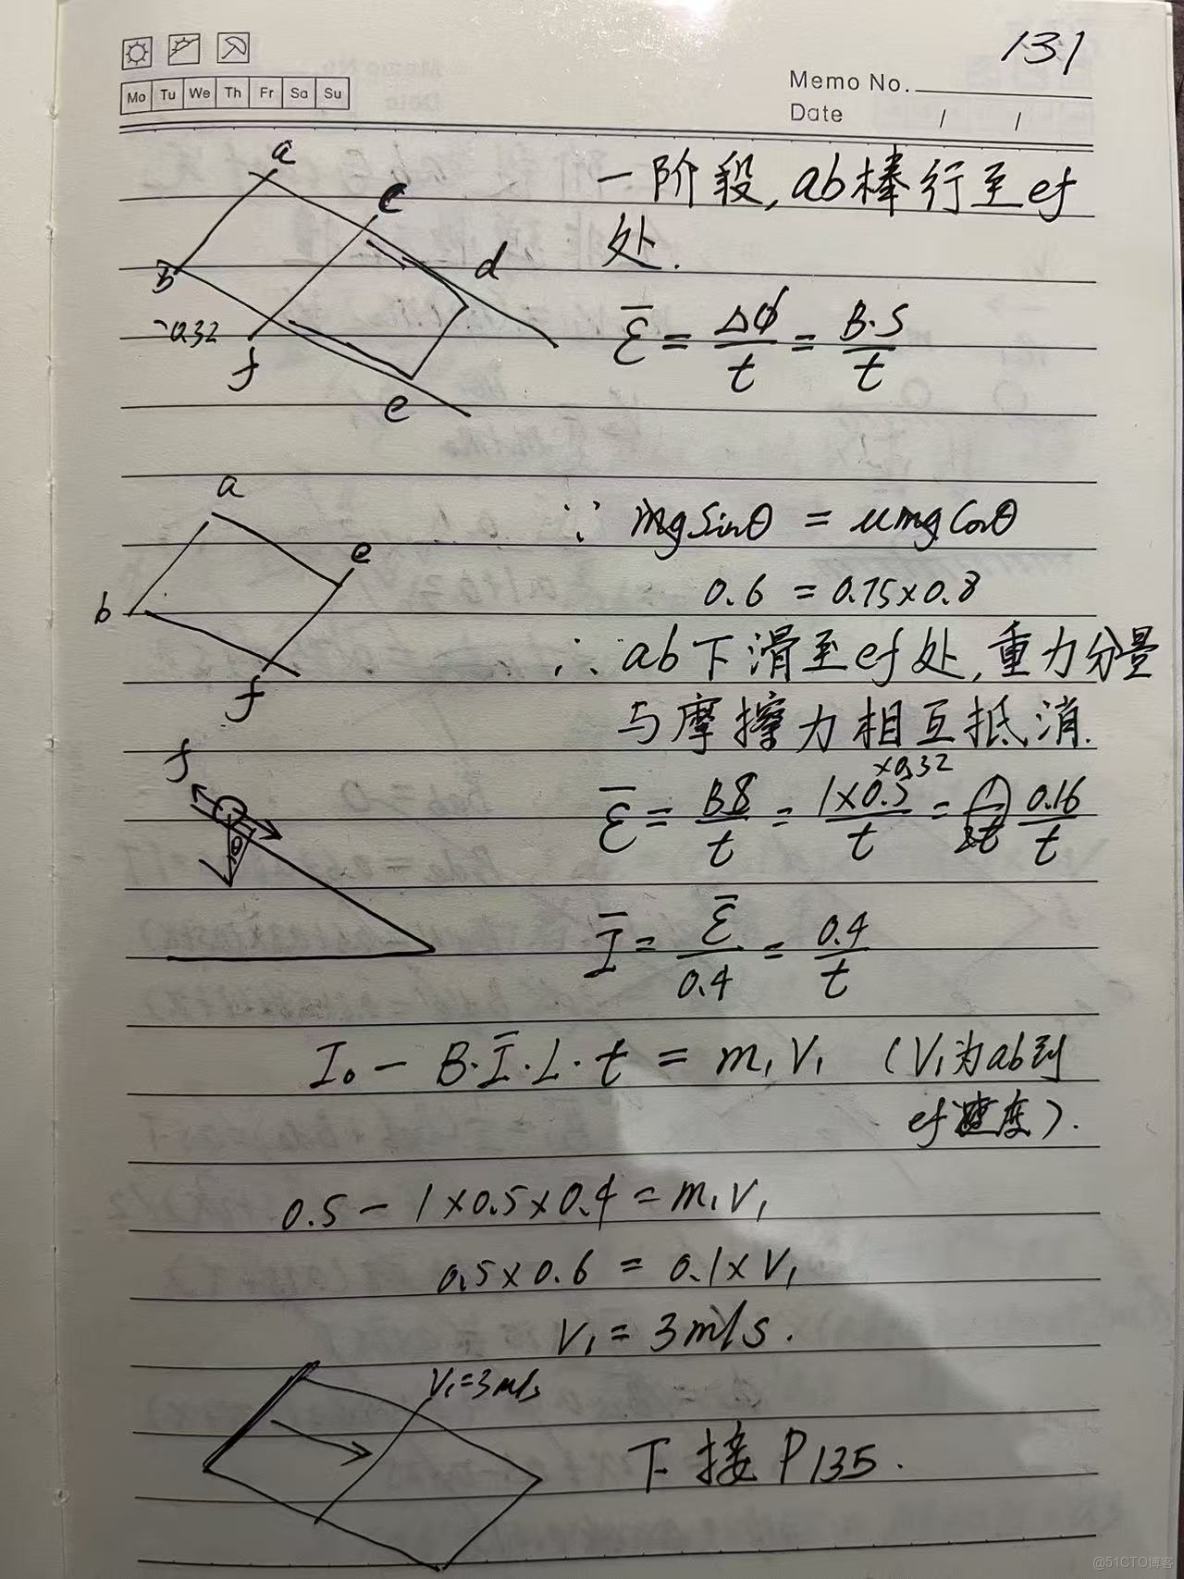 131
Mo Tu We Th Fr Sa Su
Memo No.
Date / /
a
e
d
b
0.32
f
e
一阶段,ab棒行至ef
处.
ε̅ = ΔΦ/t = B·S/t
a
e
b
f
∵ mgSinθ = μmgCosθ
0.6 = 0.75×0.8
∴ ab下滑至ef处,重力分量
与摩擦力相互抵消.
f
θ
ε̅ = BS/t = 1×0.5×0.32/t = 0.16/t
I̅ = ε̅/0.4 = 0.4/t
I₀ - B·I̅·L·t = m₁V₁ (V₁为ab到
ef速度).
0.5 - 1×0.5×0.4 = m₁V₁
0.5×0.6 = 0.1×V₁
V₁ = 3m/s.
V₁=3m/s
下接P135.
@51CTO博客